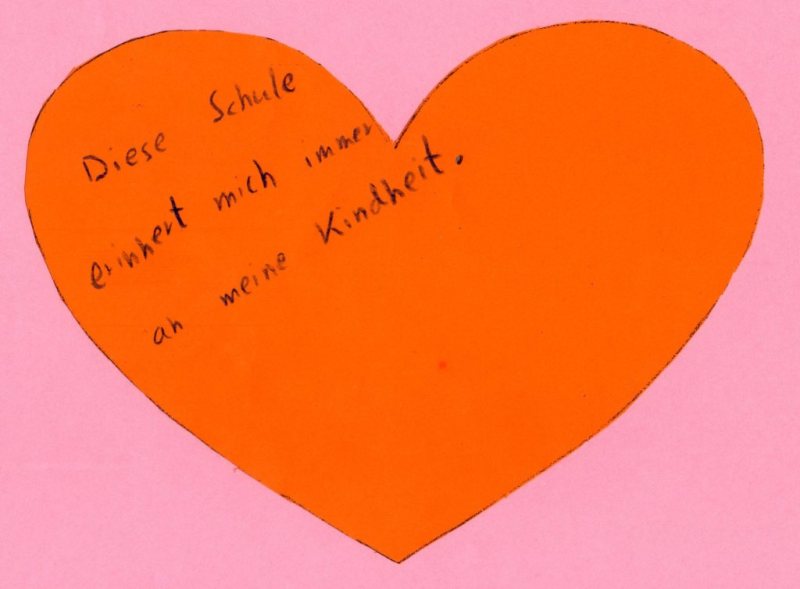 Diese Schule
erinnert mich immer
an meine Kindheit.